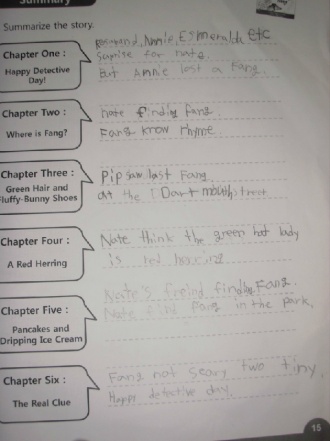 Summary
Summarize the story.
Rosamond, Annie, Esmeralda etc
Chapter One :
Happy Detective
Day!
suprise for nate.
But Annie lost a Fang.
Chapter Two :
Where is Fang?
nate finding fang
Fang know rhyme
Chapter Three :
Green Hair and
Fluffy-Bunny Shoes
Pip saw last Fang
at the Dartmouth street
Chapter Four :
A Red Herring
Nate think the green hat lady
is red herring
Chapter Five :
Pancakes and
Dripping Ice Cream
Nate's freind finding Fang.
Nate find Fang in the park.
Chapter Six :
The Real Clue
Fang not scary two tiny,
Happy detective day.
15